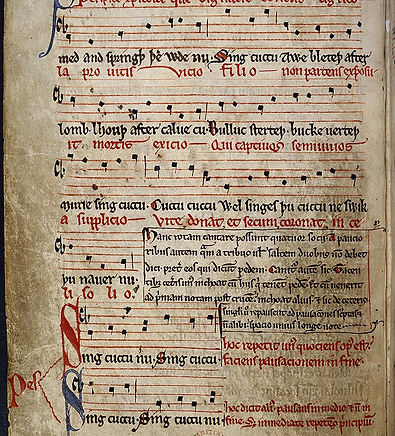 med and springþ þe wde nu. Sing cuccu Awe bleteþ after
la pro uitis vicio filio non parcens exposu
lomb lhouþ after calue cu. Bulluc sterteþ. bucke uerteþ
it mortis exicio Qui captiuos semiuiuos
murie sing cuccu. Cuccu cuccu Wel singes þu cuccu ne swik
a supplicio Vite donat et secum coronat in ce
þu nauer nu.
li so li o.
Hanc rotam cantare possunt quatuor socii. A paucio
ribus autem a tribus saltem duobus debet
dici eos qui dicunt pedem. sic. Tacen
tibus inchoat tenent pedem. uenerit
ad primam notam post crucem. inchoat alius. sic de ceteris
singuli repausent ad pausaciones
alibi. spacio unius longe note.
Sing cuccu nu. Sing cuccu.
hoc repetit quociens op est.
faciens pausacionem in fine.
Pes
Sing cuccu. Sing cuccu nu
hoc dicit pausans in medio in
fine. immediate repetens principium